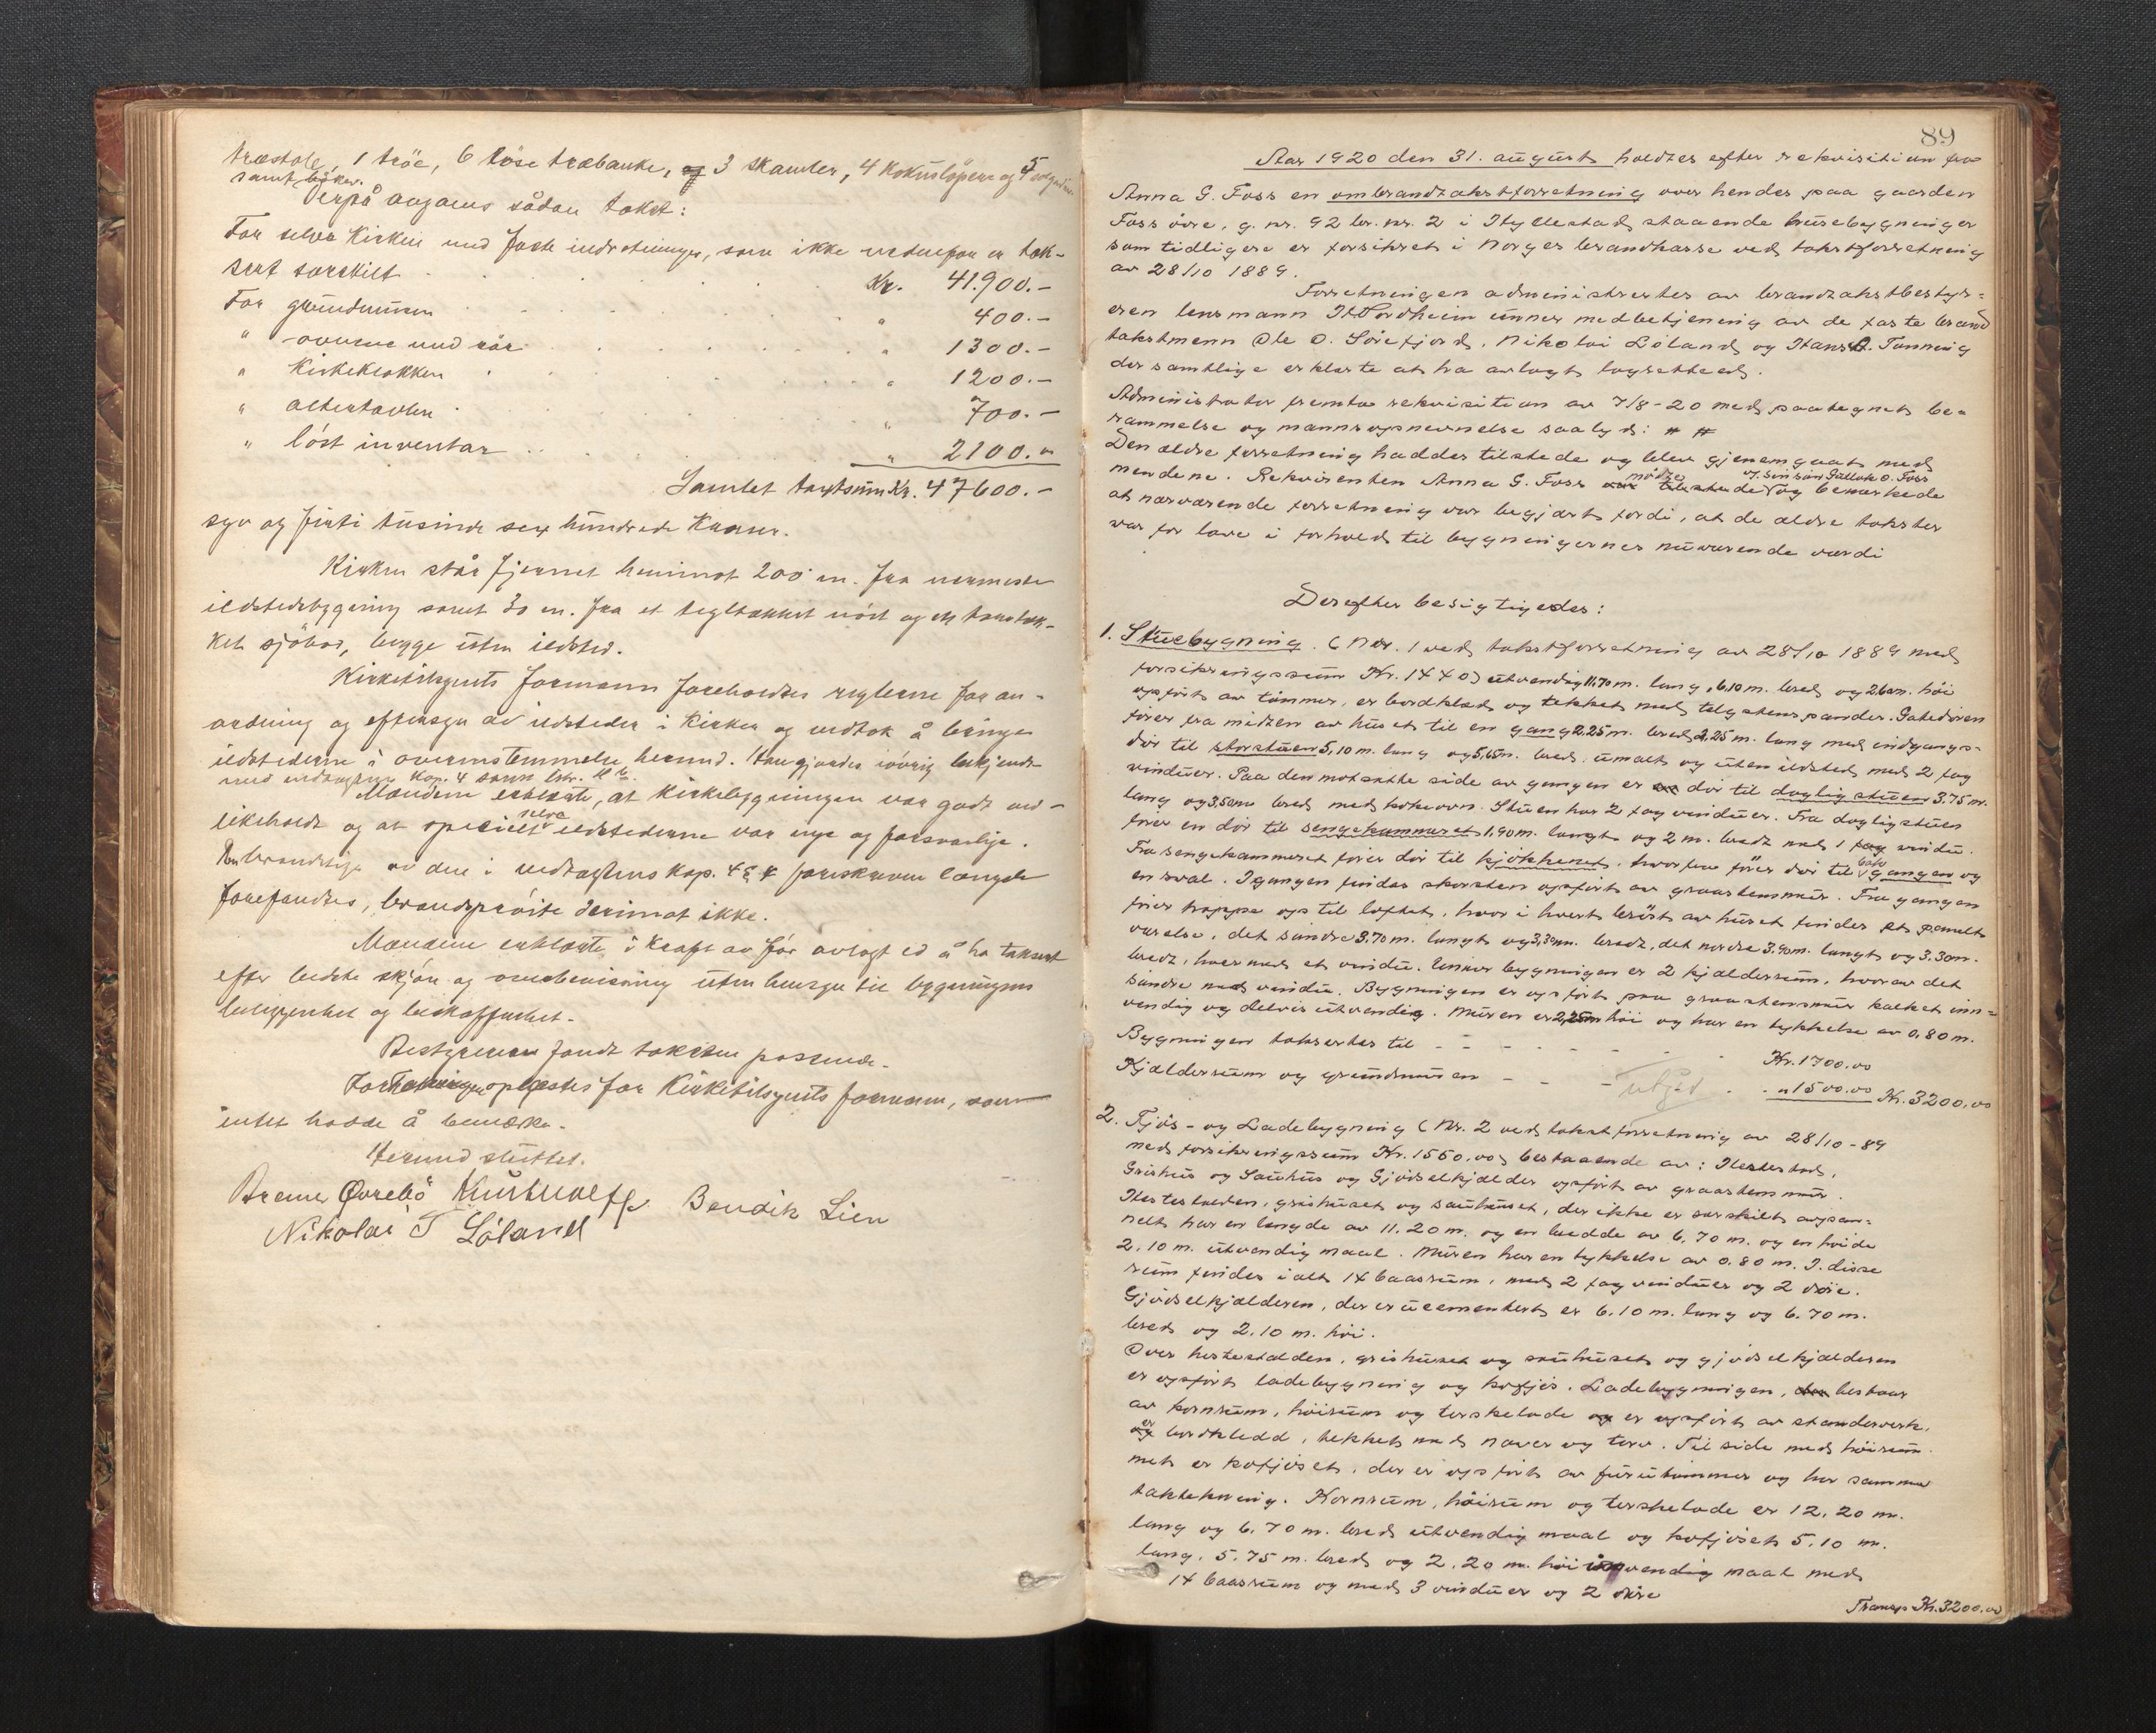 træstole, 1 tröe, 6 löse træbanke, og 3 skamler, 4 kokuslöpere og 5
samt bøker.
Derpå avgaves sådan takst:
For selve Kirken med faste indretninger, som ikke nedenfor er tak-
sert særskilt . . . . Kr. 41.900.-
For grundmuren . . . . " 400.-
" ovnene med rör . . . . " 1300.-
" Kirkeklokken . . . . " 1200.-
" altertavlen . . . . " 700.-
" löst inventar . . . . " 2100.-
Samlet takstsum Kr. 47600.-
syv og firti tusinde sex hundrede Kroner.
Kirken står fjernet henimot 200 m. fra nærmeste
ildstedsbygning samt 30 m. fra et tegltækket nöst og et
ket sjöbod, begge uten ildsted.
Kirketilsynets formann foreholdtes reglerne for an-
ordning og eftersyn av ildsteder i Kirker og vedtok å bringe
ildstederne i overensstemmelse hermed. Han gjordes iövrig bekjendt
med vedtægtens Kap. 4 samt
Mændene erklærte, at Kirkebygningen var godt ved-
likeholdt og at specielt selve ildstederne var nye og forsvarlige.
Brandstige av den i vedtægtens Kap. 4 § 4 foreskrevne længde
forefandtes, brandspröite derimot ikke.
Mændene erklærte i kraft av för avlagt ed å ha taksert
efter bedste skjön og overbevisning uten hensyn til bygningens
beliggenhet og beskaffenhet.
Bestyreren fandt taksten passende.
Forretningen oplæstes for Kirketilsynets formann, som
intet hadde å bemerke.
Hermed sluttet.
Brems Øvrebö Kürhuolff. Bendik Lien
Nikolai T Löland
89
Aar 1920 den 31. august holdtes efter rekvisition fra
Anna G. Foss en ombrandtakstforretning over hendes paa gaarden
Foss övre, g. nr. 92 br. nr. 2 i Hyllestad staaende husebygninger
som tidligere er forsikret i Norges brandkasse ved takstforretning
av 28/10 1889.
Forretningen administrertes av brandtakstbesty-
eren lensmann H. Nordheim under medbetjening av de faste brand
takstmenn Ole O. Sörefjord, Nikolai Löland og Hans A. Tonning
der samtlige erklærte at ha avlagt lagrettesed.
Administrator fremla rekvisition av 7/8-20 med paategnet be-
rammelse og mannsopnevnelse saalyd: # #
Den eldre forretning haddes tilstede og blev gjenemgaat med
mendene. Rekvirenten Anna G. Foss mödte og sin sön Gullak O. Foss og bemerkede
at nærværende forretning var begjært fordi, at de eldre takster
var for lave i forhold til bygningernes nuværende værdi
Derefter besigtigedes:
1. Stuebygning. (Nr. 1 ved takstforretning av 28/10 1889 med
forsikringssum Kr. 1440) utvendig 11,70 m. lang, 6,10 m. bred og 2,60 m. höi
opfört av tömmer, er bordklæd og tekket med telgstenspander. Gatedören
förer fra midten av huset til en gang 2,25 m. bred 2,25 m. lang med indgangs-
dör til storstuen 5,10 m. lang og 5,65 m. bred, umalt og uten ildsted med 2 fag
vinduer. Paa den motsatte side av gangen er dör til daglig stuen 3.75 m.
lang og 3.50 m bred med kokeovn. Stuen har 2 fag vinduer. Fra dagligstuen
förer en dör til sengekammeret 1,90 m. langt og 2 m. bredt med 1 fag vindu.
Fra sengekammeret förer dör til kjökkenet, hvorfra förer dör til gangen og
en sval. I gangen findes skorsten opfört av graastensmur. Fra gangen
förer trappe op til loftet, hvor i hvert bröst av huset findes et panelt
værelse, det söndre 3.70 m. langt og 3,30 m. bredt, det nordre 3.90 m. langt og 3.30 m.
bredt, hver med et vindu. Under bygningen er 2 kjælderrum, hvorav det
söndre med vindu. Bygningen er opfört paa graastensmur kalket inn-
vendig og delvis utvendig. Muren er 2,25 m höi og har en tykkelse av 0,80 m.
Bygningen taksertes til - - - - - Kr. 1700.00
Kjælderrum og grundmuren - - - utgjør - " 1500.00 Kr. 3200.00
2. Fjös- og Ladebygning (Nr. 2 ved takstforretning av 28/10-89
med forsikringssum Kr. 1560.00) bestaaende av: Hestestald,
Grishus og Sauhus og Gjödselkjælder opfört av graastensmur.
Hestestalden, grishuset og sauhuset, der ikke er særskilt avpan-
nelt har en længde av 11.20 m. og en bredde av 6,70 m. og en höide
2,10 m. utvendig maal. Muren har en tykkelse av 0.80 m. I disse
rum findes ialt 14 baasrum, med 2 fag vinduer og 2 döre.
Gjödselkjælderen, der er ucementert er 6.10 m. lang og 6.70 m.
bred og 2.10 m. höi.
Over hestestalden, grishuset og sauhuset og gjödselkjælderen
er opfört ladebygning og kofjös. Ladebygningen, bestaar
av kornrum, höirum og terskelade er opfört av standerverk,
er bordkledd, tekket med næver og torv. Til side med höirum-
met er kofjöset, der er opfört av furutömmer og har samme
taktekning. Kornrum, höirum og terskelade er 12,20 m.
lang og 6,70 m. bred utvendig maal og kofjöset 5,10 m.
lang, 5.75 m. bred og 2,20 m. höi invendig maal med
14 baasrum og med 3 vinduer og 2 döre
Transp. Kr. 3200.00